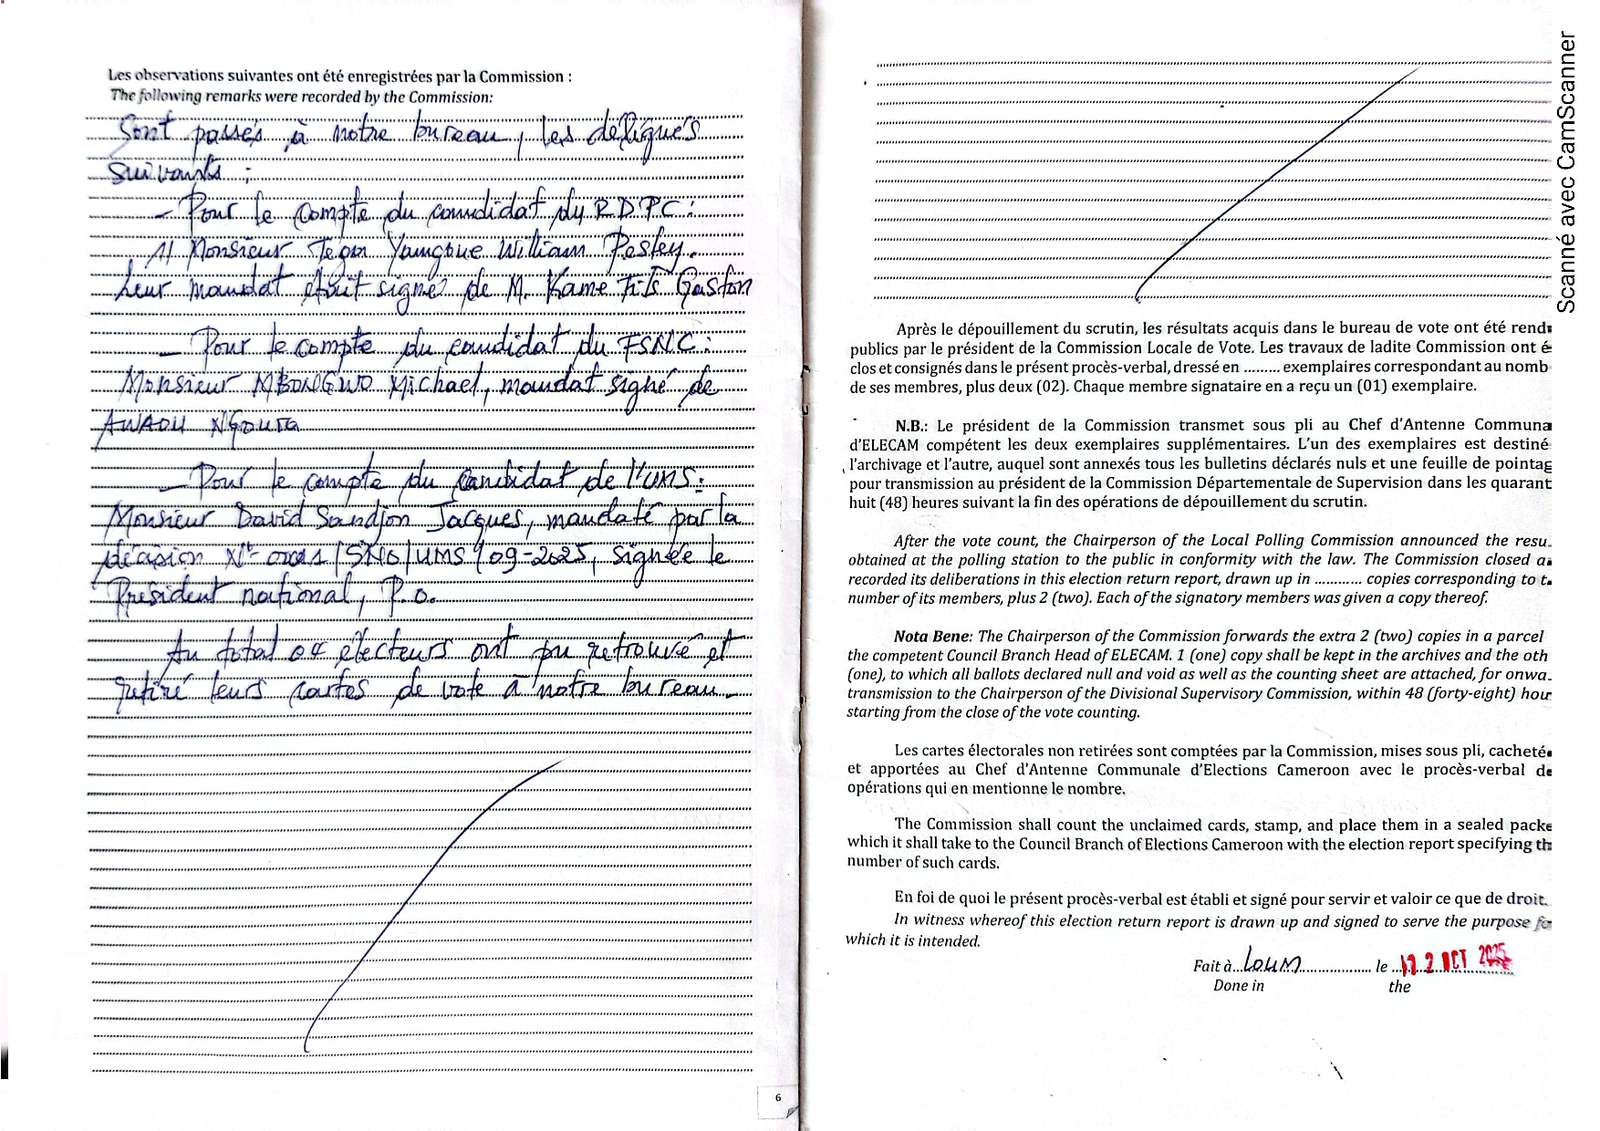 Les observations suivantes ont été enregistrées par la Commission :
The following remarks were recorded by the Commission:
Sont passés à notre bureau, les délégués
suivants :
- Pour le compte du candidat du RDPC :
1/ Monsieur Tegou Yamgoue William Pesley.
Leur mandat était signé de M. Kame Fils Gaston
- Pour le compte du candidat du FSNC :
Monsieur MBONGWO Michael, mandat signé de
AWAOU NGOUTA
- Pour le compte du candidat de l'UMS :
Monsieur David Sandjon Jacques, mandaté par la
décision N° /SNO/UMS/09-2025, signée le
Président national, P.O.
Au total 04 électeurs ont pu retrouvé et
retiré leurs cartes de vote à notre bureau.
6
Après le dépouillement du scrutin, les résultats acquis dans le bureau de vote ont été rend
publics par le président de la Commission Locale de Vote. Les travaux de ladite Commission ont é
clos et consignés dans le présent procès-verbal, dressé en ......... exemplaires correspondant au nomb
de ses membres, plus deux (02). Chaque membre signataire en a reçu un (01) exemplaire.
N.B.: Le président de la Commission transmet sous pli au Chef d'Antenne Communa
d'ELECAM compétent les deux exemplaires supplémentaires. L'un des exemplaires est destiné
l'archivage et l'autre, auquel sont annexés tous les bulletins déclarés nuls et une feuille de pointag
pour transmission au président de la Commission Départementale de Supervision dans les quarant
huit (48) heures suivant la fin des opérations de dépouillement du scrutin.
After the vote count, the Chairperson of the Local Polling Commission announced the resu
obtained at the polling station to the public in conformity with the law. The Commission closed a
recorded its deliberations in this election return report, drawn up in ........... copies corresponding to t
number of its members, plus 2 (two). Each of the signatory members was given a copy thereof.
Nota Bene: The Chairperson of the Commission forwards the extra 2 (two) copies in a parcel
the competent Council Branch Head of ELECAM. 1 (one) copy shall be kept in the archives and the oth
(one), to which all ballots declared null and void as well as the counting sheet are attached, for onwa
transmission to the Chairperson of the Divisional Supervisory Commission, within 48 (forty-eight) hour
starting from the close of the vote counting.
Les cartes électorales non retirées sont comptées par la Commission, mises sous pli, cacheté
et apportées au Chef d'Antenne Communale d'Elections Cameroon avec le procès-verbal de
opérations qui en mentionne le nombre.
The Commission shall count the unclaimed cards, stamp, and place them in a sealed packe
which it shall take to the Council Branch of Elections Cameroon with the election report specifying th
number of such cards.
En foi de quoi le présent procès-verbal est établi et signé pour servir et valoir ce que de droit.
In witness whereof this election return report is drawn up and signed to serve the purpose fo
which it is intended.
Fait à LOUM le 12 OCT 2025
Done in the
Scanné avec CamScanner